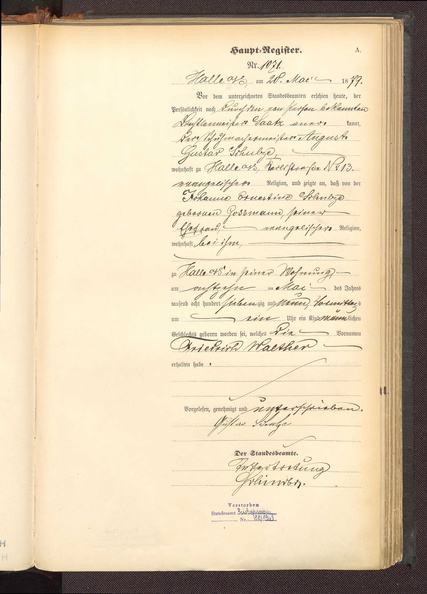 Haupt-Register.
A.
Nr. 1071.
Halle a/S am 20. Mai 1879.
Vor dem unterzeichneten Standesbeamten erschien heute, der
Persönlichkeit nach durch den von Person bekannten
anerkannt,
der Schuhmachermeister August
Gustav
wohnhaft zu Halle a/S, No. 13.
evangelischer Religion, und zeigte an, daß von der
Johanne Ernestine
geborenen Gossmann, seiner
Ehefrau, evangelischer Religion,
wohnhaft bei ihm,
zu Halle a/S in seiner Wohnung,
am achtzehn ten Mai des Jahres
tausend acht hundert siebenzig und neun, Vormittags
um ein Uhr ein Kind männlichen
Geschlechts geboren worden sei, welches die Vornamen
Friedrich Walther
erhalten habe.
Vorgelesen, genehmigt und unterschrieben.
Gustav
Der Standesbeamte.
In Vertretung
Verstorben
Standesamt
Nr.